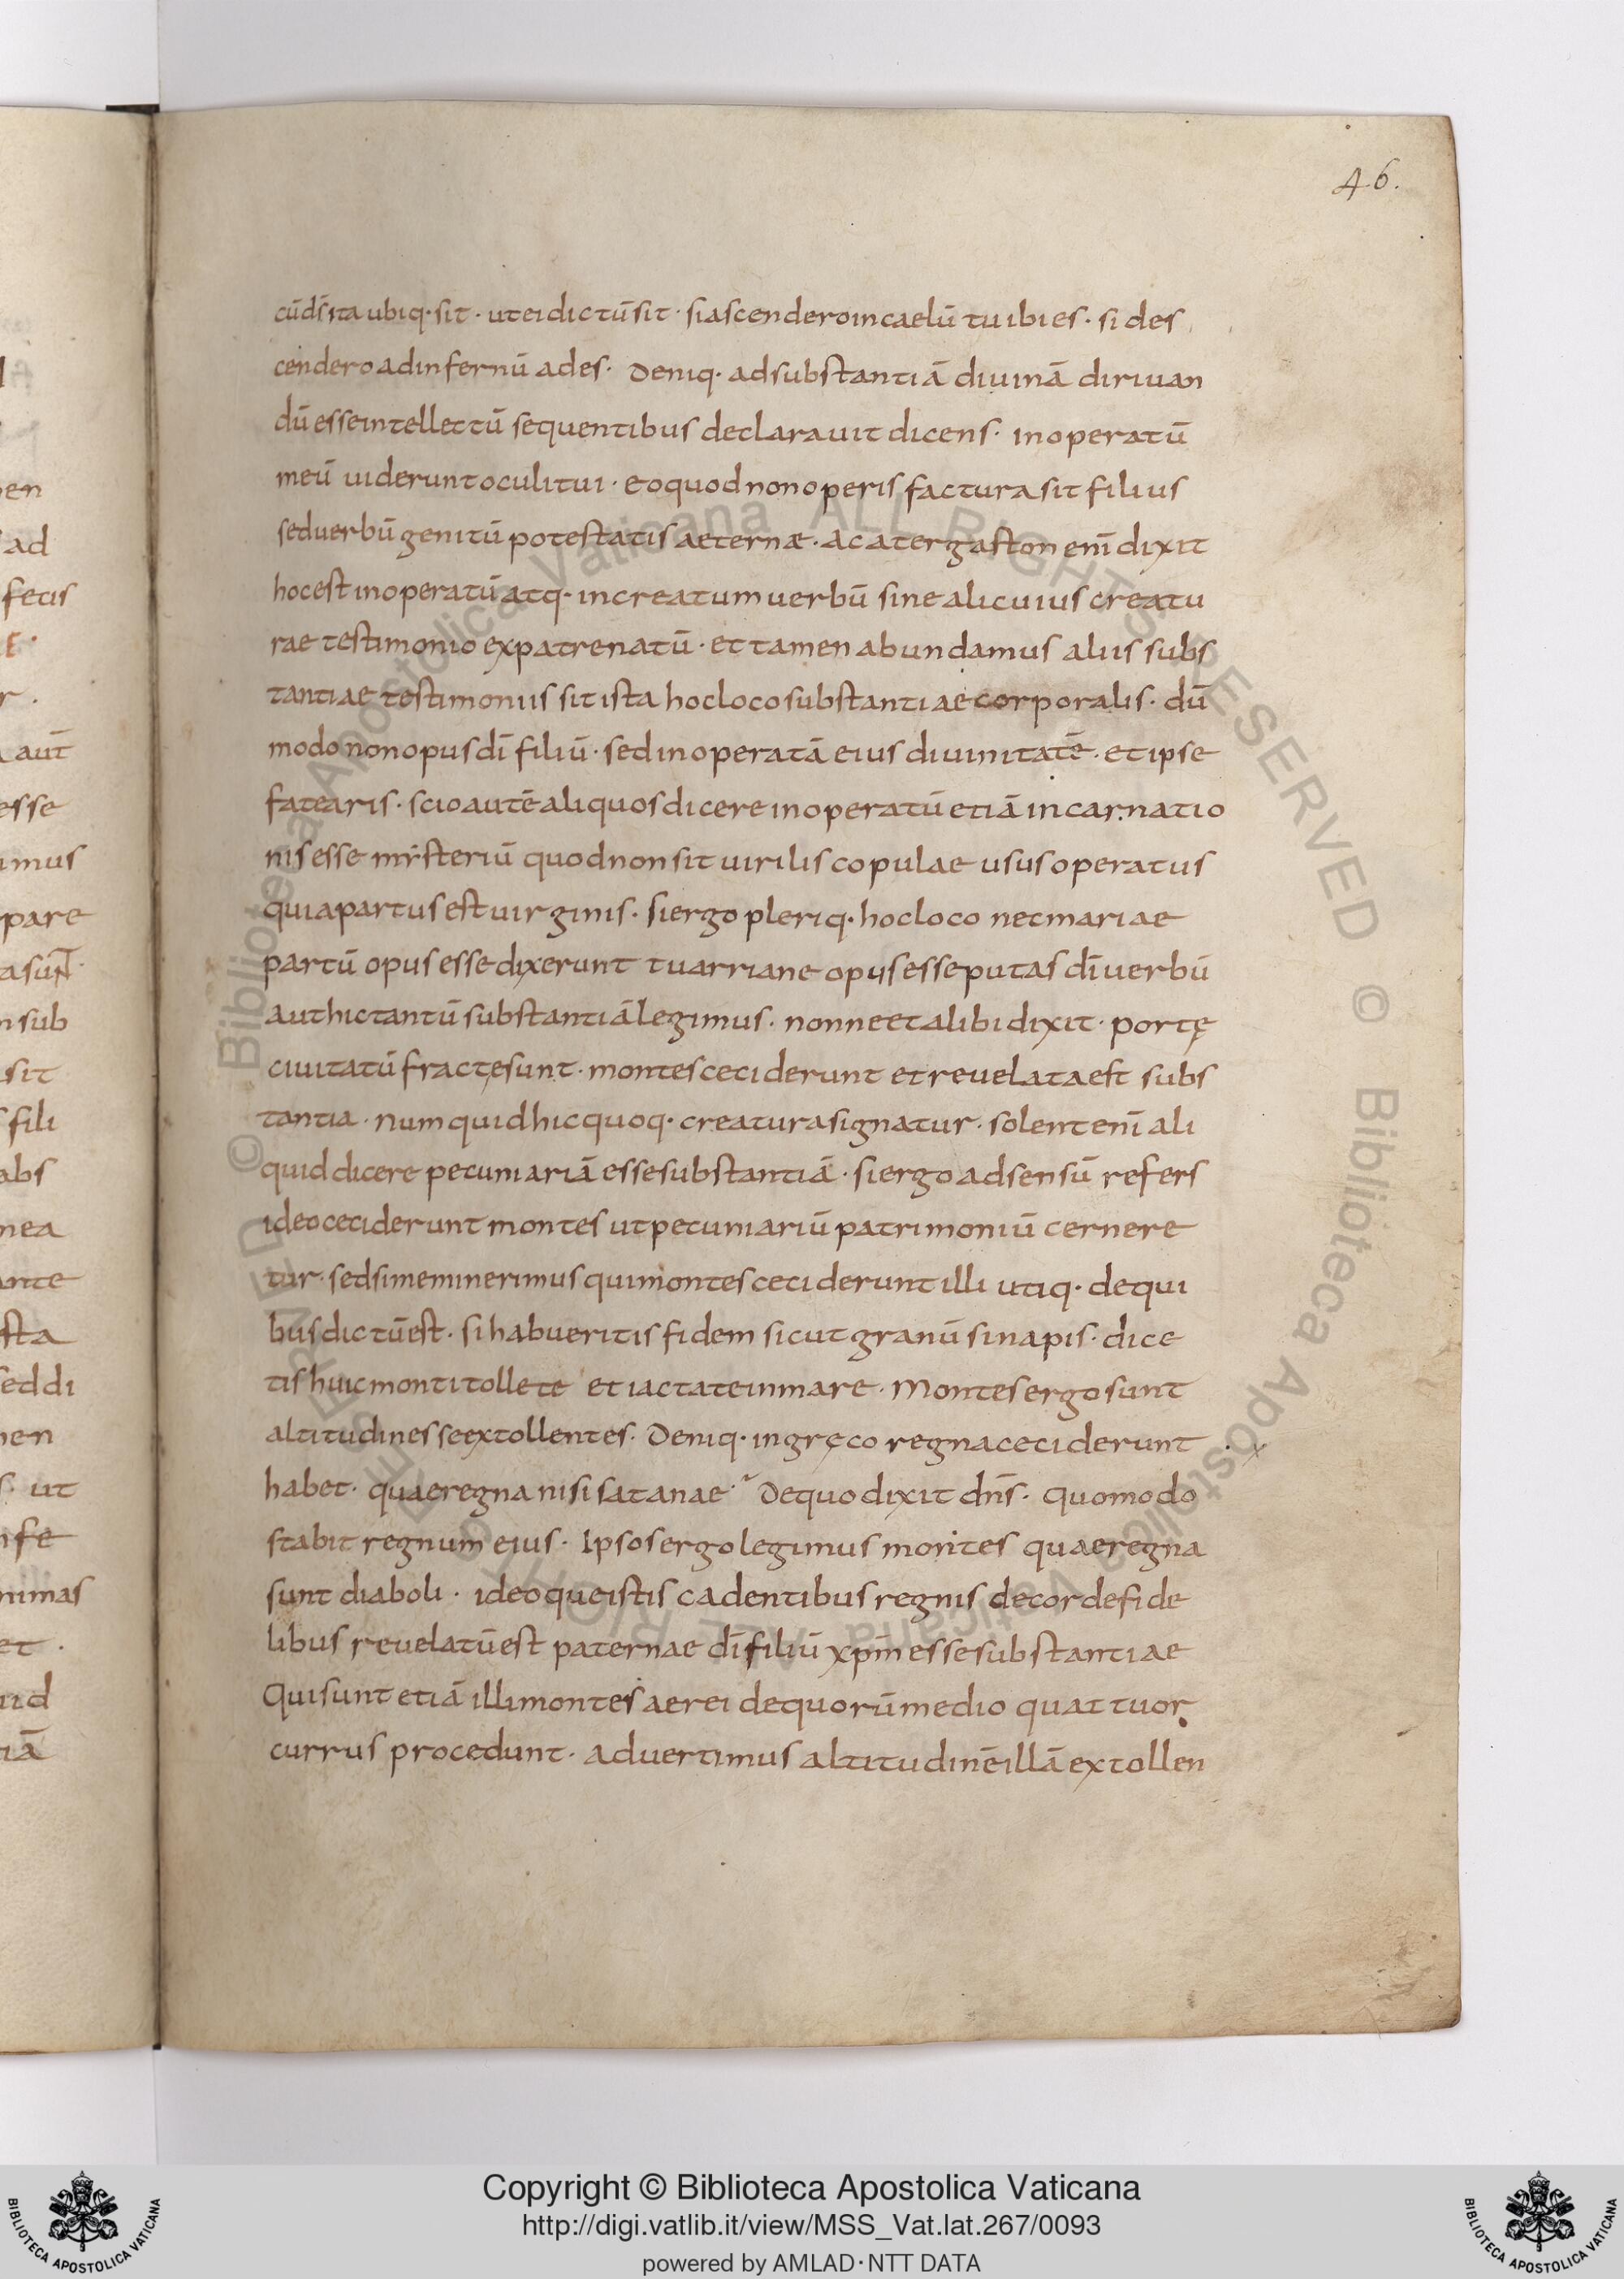 46.
cū dſ ita ubiq· sit · ut ei dictū sit · si ascendero in caelū tu ibi es · si des
cendero ad infernū ades · Deniq· ad substantiā diuinā diriuan
dū esse intellectū sequentibus declarauit dicens · inoperatū
meū uiderunt oculi tui · eo quod non operis factura sit filius
sed uerbū genitū potestatis aeternæ · acatergaston enī dixit
hoc est inoperatū atq· increatum uerbū sine alicuius creatu
rae testimonio ex patre natū · et tamen abundamus aliis subs
tantiae testimoniis sit ista hoc loco substantiae corporalis · dū
modo non opus dī filiū · sed inoperatā eius diuinitatē · et ipse
fatearis · scio autē aliquos dicere inoperatū etiā incarnatio
nis esse mẏsteriū quod non sit uirilis copulae usus operatus
quia partus est uirginis · si ergo pleriq· hoc loco nec mariae
partū opus esse dixerunt tu arriane opus esse putas dī uerbū
aut hic tantū substantiā legimus · nonne et alibi dixit · portę
ciuitatū fractę sunt · montes ceciderunt et reuelata est subs
tantia · numquid hic quoq· creatura signatur · solent enī ali
quid dicere pecuniariā esse substantiā · si ergo ad sensū refers
ideo ceciderunt montes ut pecuniariū patrimoniū cernere
tur · sed si meminerimus qui montes ceciderunt illi utiq· de qui
bus dictū est · si habueritis fidem sicut granū sinapis · dice
tis huic monti tollete et iactate in mare · Montes ergo sunt
altitudines se extollentes · Deniq· in gręco regna ceciderunt
habet · quae regna nisi satanae · De quo dixit dn̄s · quomodo
stabit regnum eius · Ipsos ergo legimus montes quae regna
sunt diaboli · ideoque istis cadentibus regnis de corde fide
libus reuelatū est paternae dī filiū xp̄m esse substantiae
Qui sunt etiā illi montes aerei de quorū medio quattuor
currus procedunt · aduertimus altitudinē illā extollen
en
ad
fecis
E·
r .
aut̄
esse
imus
pare
asunt
sub
sit
fili
abs
nea
ante
sta
sed di
nen
s · ut
nfe
nimas
et ·
uid
tiā
© Biblioteca Apostolica Vaticana ALL RIGHTS RESERVED © Biblioteca Apostolica Vaticana ALL RIGHTS RESERVED
Copyright © Biblioteca Apostolica Vaticana
http://digi.vatlib.it/view/MSS_Vat.lat.267/0093
powered by AMLAD·NTT DATA
BIBLIOTECA APOSTOLICA VATICANA
BIBLIOTECA APOSTOLICA VATICANA